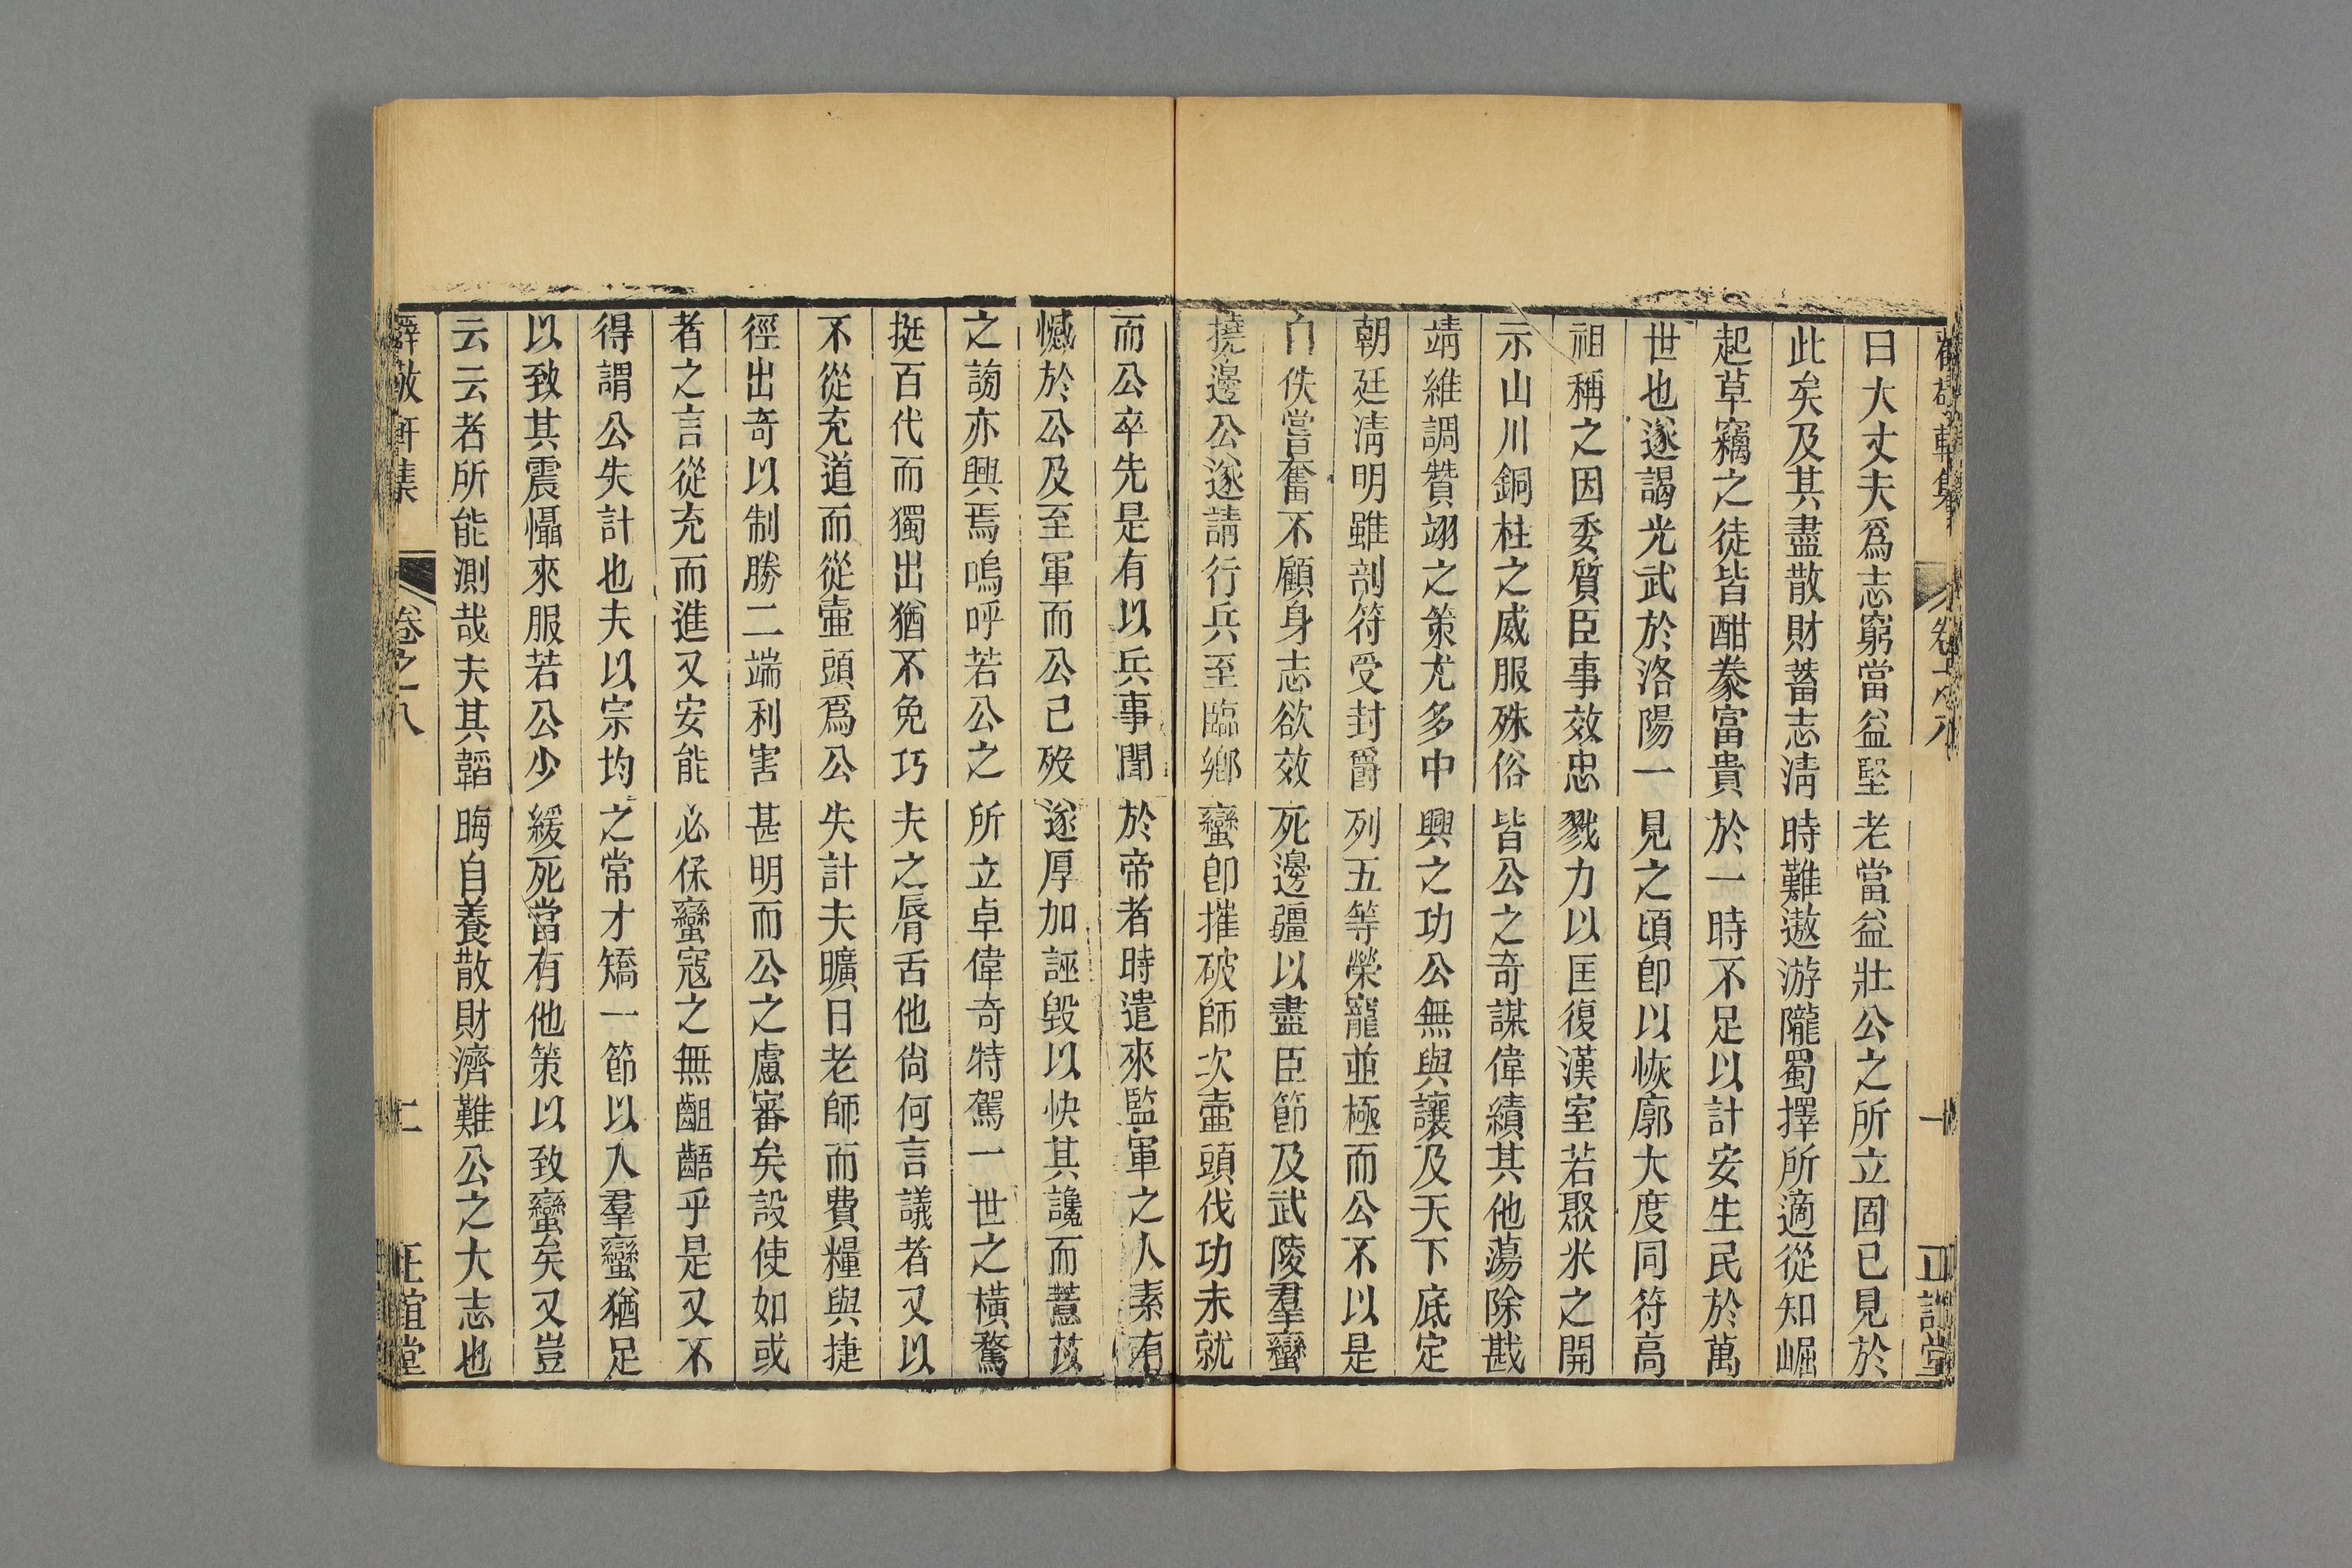 曰大丈夫爲志窮當益堅老當益壯公之所立固已見於
此矣及其盡散財蓄志淸時難遨游隴蜀擇所適從知崛
起草竊之徒皆酣豢富貴於一時不足以計安生民於萬
世也遂謁光武於洛陽一見之頃卽以恢廓大度同符高
祖稱之因委質臣事效忠戮力以匡復漢室若聚米之開
示山川銅柱之威服殊俗皆公之奇謀偉績其他蕩除戡
靖維調贊翊之策尤多中興之功公無與讓及天下底定
朝廷淸明雖剖符受封爵列五等榮寵並極而公不以是
自佚嘗奮不顧身志欲效死邊疆以盡臣節及武陵羣蠻
撓邊公遂請行兵至臨鄉蠻卽摧破師次壷頭伐功未就
而公卒先是有以兵事聞於帝者時遣來監軍之人素有
憾於公及至軍而公已殁遂厚加誣毀以快其讒而薏苡
之謗亦興焉嗚呼若公之所立卓偉奇特駕一世之橫騖
挺百代而獨出猶不免巧夫之脣舌他尙何言議者又以
不從充道而從壷頭爲公失計夫曠日老師而費糧與捷
徑出奇以制勝二端利害甚明而公之慮審矣設使如或
者之言從充而進又安能必保蠻寇之無齟齬乎是又不
得謂公失計也夫以宗均之常才矯一節以入羣蠻猶足
以致其震懾來服若公少緩死當有他策以致蠻矣又豈
云云者所能測哉夫其韜晦自養散財濟難公之大志也
薛敬軒集 卷之八 二 正誼堂